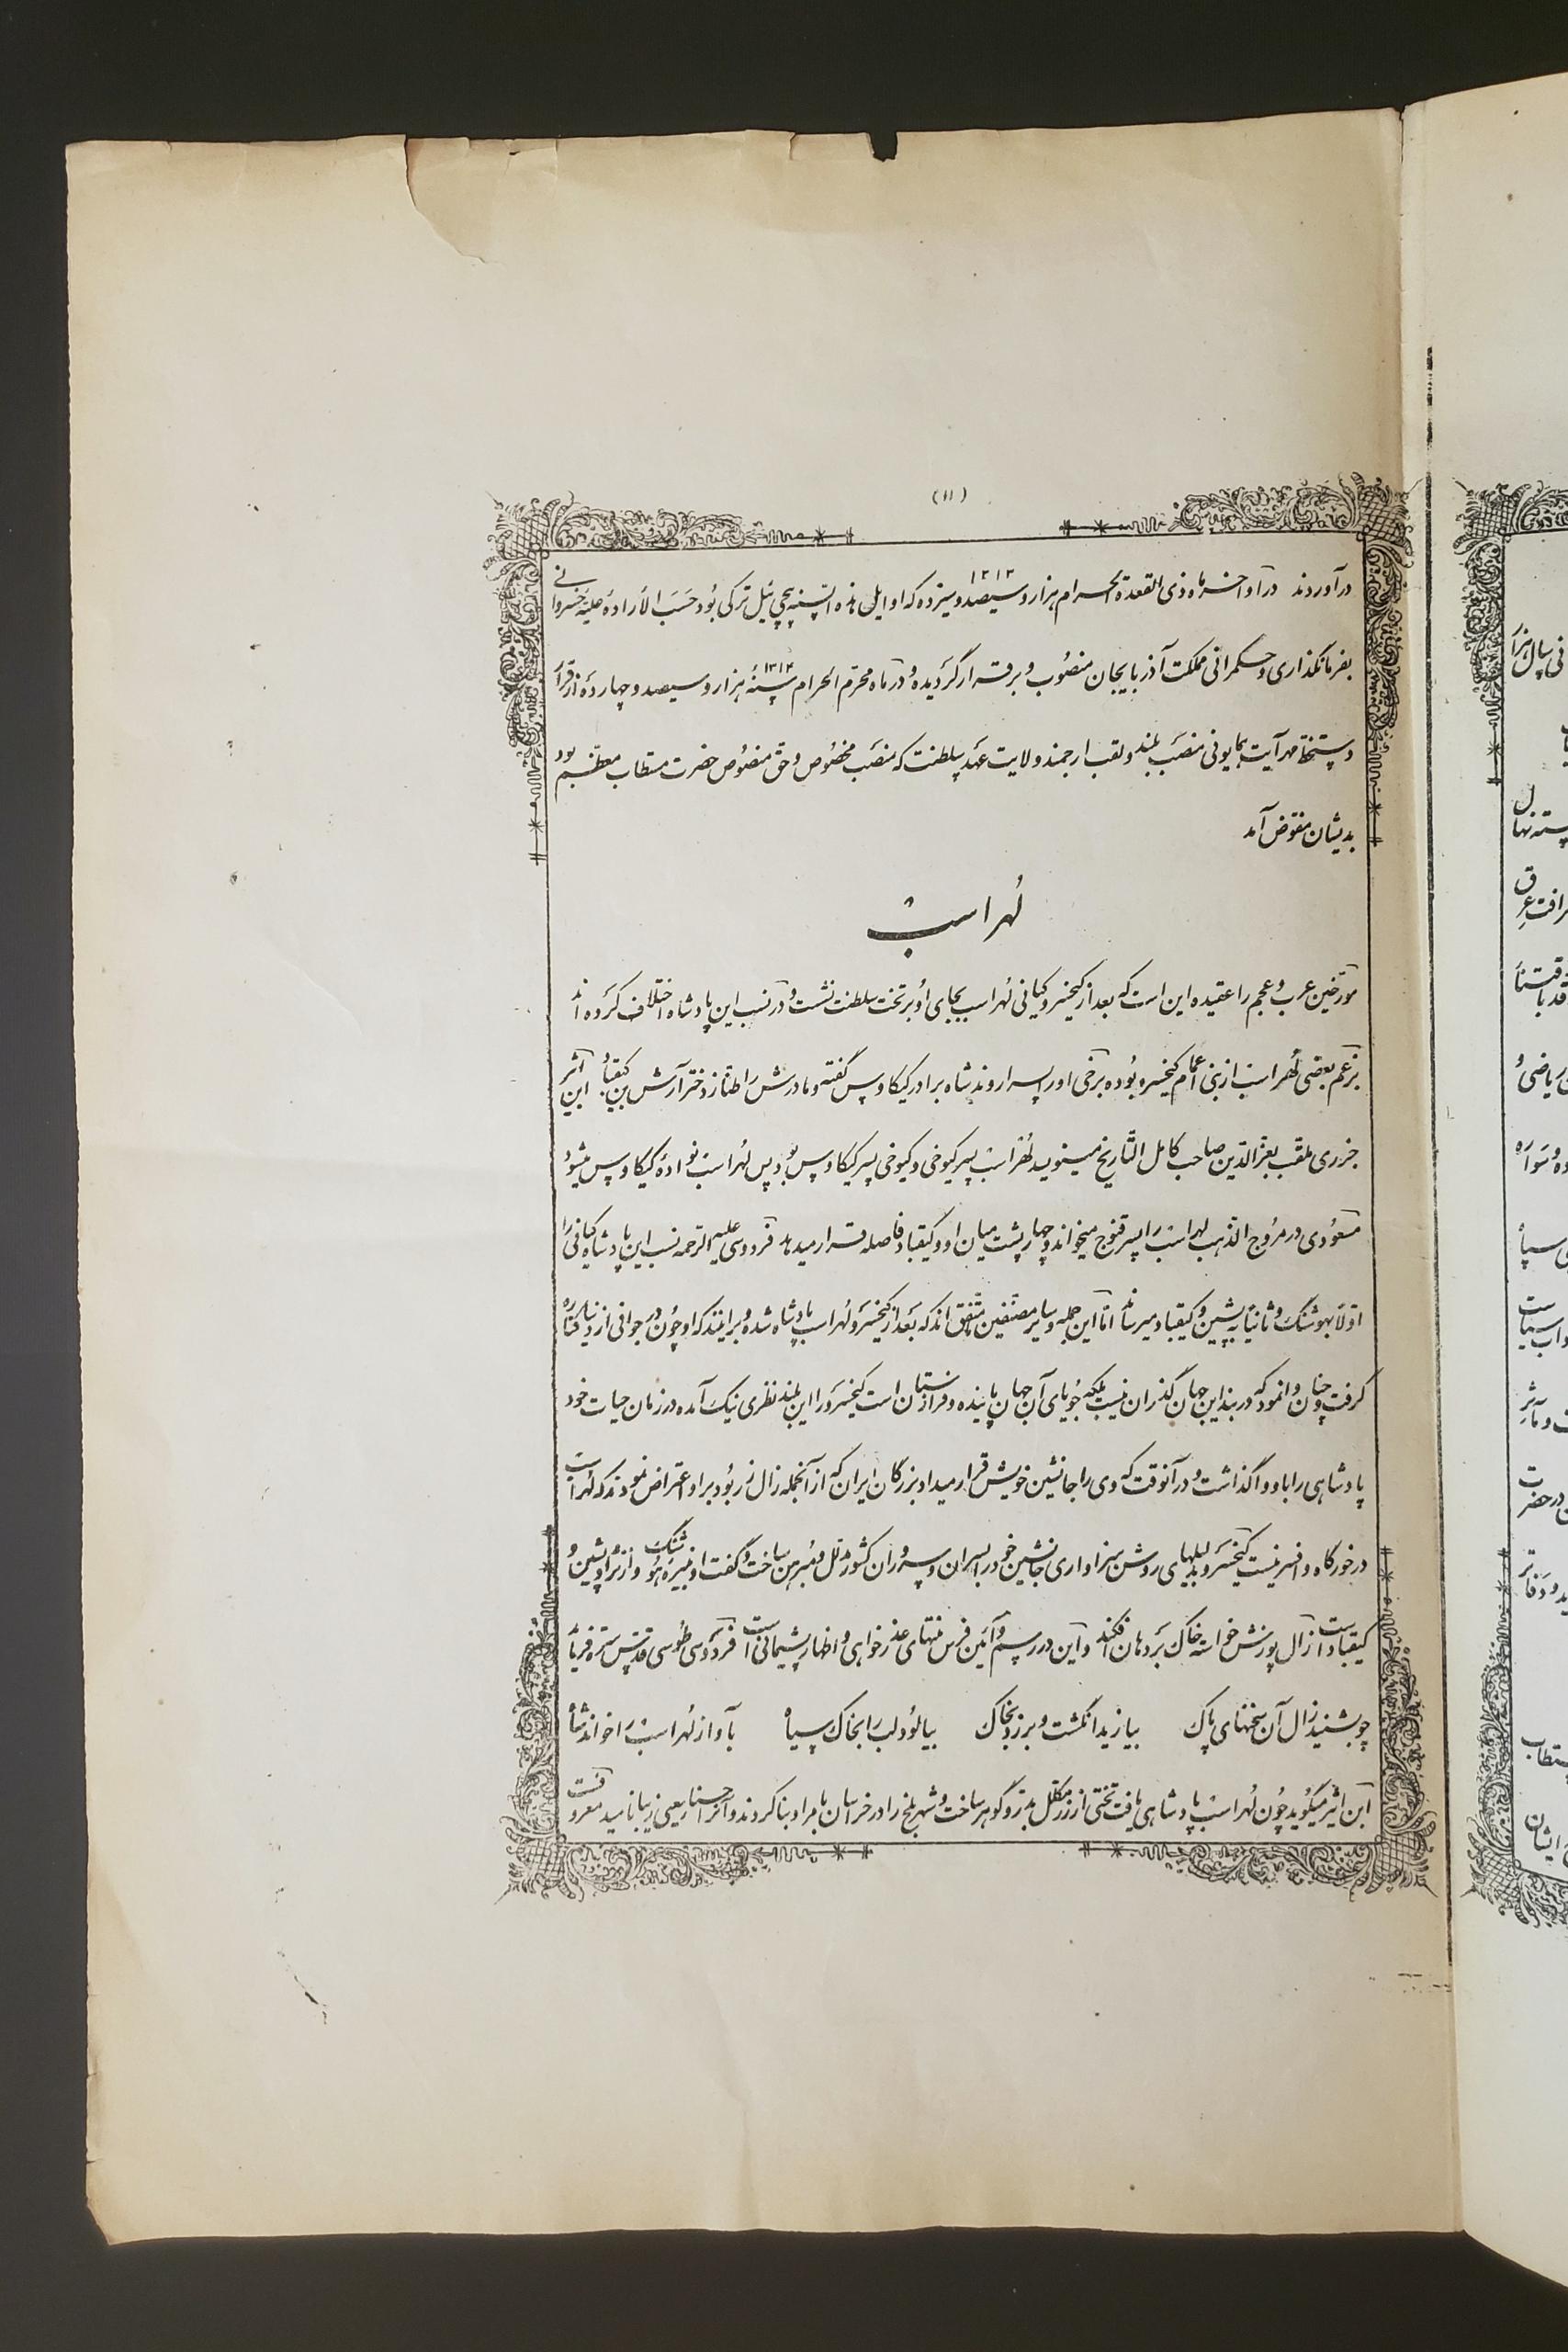 (۱۱)
درآوردند در آواخر ماه ذی القعدة الحرام هزار و سیصد و سیزده ۱۳۱۳ که اوایل هذه السنه پیچی ئیل ترکی بود حسب الاراده علیه خسروانی
بفرمانگذاری و حکمرانی مملکت آذربایجان منصوب و برقرار گردیده و در ماه محرم الحرام سنهٔ ۱۳۱۴ هزار و سیصد و چهارده از قرار
دستخط مهر آیت همایونی منصب بلند و لقب ارجمند ولایت عهد سلطنت که منصب مخصوص و حق منصوص حضرت مستطاب معظم بود
بدیشان مفوض آمد
لهراسب
مورخین عرب و عجم را عقیده این است که بعد از کیخسرو کیانی لهراسب بجای او بر تخت سلطنت نشست و در نسب این پادشاه اختلاف کرده اند
بزعم بعضی لهراسب از بنی اعمام کیخسرو بوده برخی او را پسر اروند شاه برادر کیکاوس گفته و مادرش را طناز دختر آرش بن کیقباد ابن اثیر
جزری ملقب بعز الدین صاحب کامل التاریخ مینویسد لهراسب پسر کیوخی و کیوخی پسر کیکاوس بود پس لهراسب نوادهٔ کیکاوس میشود
مسعودی در مروج الذهب لهراسب را پسر قنوج میخواند و چهار پشت میان او و کیقباد فاصله قرار میدهد فردوسی علیه الرحمه نسب این پادشاه کیانی را
اولا بهوشنگ و ثانیا به پشین و کیقباد میرساند اما این جمله و سایر مصنفین متفق اند که بعد از کیخسرو لهراسب پادشاه شده و برانند که او چون در جوانی از دنیا کناره
گرفت و چنان وانمود که در بند این جهان گذران نیست بلکه جویای آن جهان پاینده و فرازستان است کیخسرو را این بلند نظری نیک آمده در زمان حیات خود
پادشاهی را باو واگذاشت و در آنوقت که وی را جانشین خویش قرار میداد بزرگان ایران که از آنجمله زال زر بود بر او اعتراض نمودند که لهراسب
درخور گاه و افسر نیست کیخسرو بدلیلهای روشن سزاواری جانشین خود را بسران و سروران کشور مدلل و مبرهن ساخت و گفت او نبیره هوشنگ و از نژاد پشین و
کیقباد است زال پوزش خواسته خاک بر دهان افکند و این در رسم و آئین فرس منتهای عذر خواهی و اظهار پشیمانی است فردوسی طوسی قدس سره فرماید
چو بشنید زال آن سخنهای پاک بیازید انگشت و برزد بخاک بیالود لب را بخاک سیاه بآواز لهراسب را خواند شاه
ابن اثیر میگوید چون لهراسب پادشاهی یافت تختی از زر مکلل بدر و گوهر ساخت و شهر بلخ را در خراسان بامر او بنا کردند و آنرا حسنا یعنی زیبا نامید معروفست